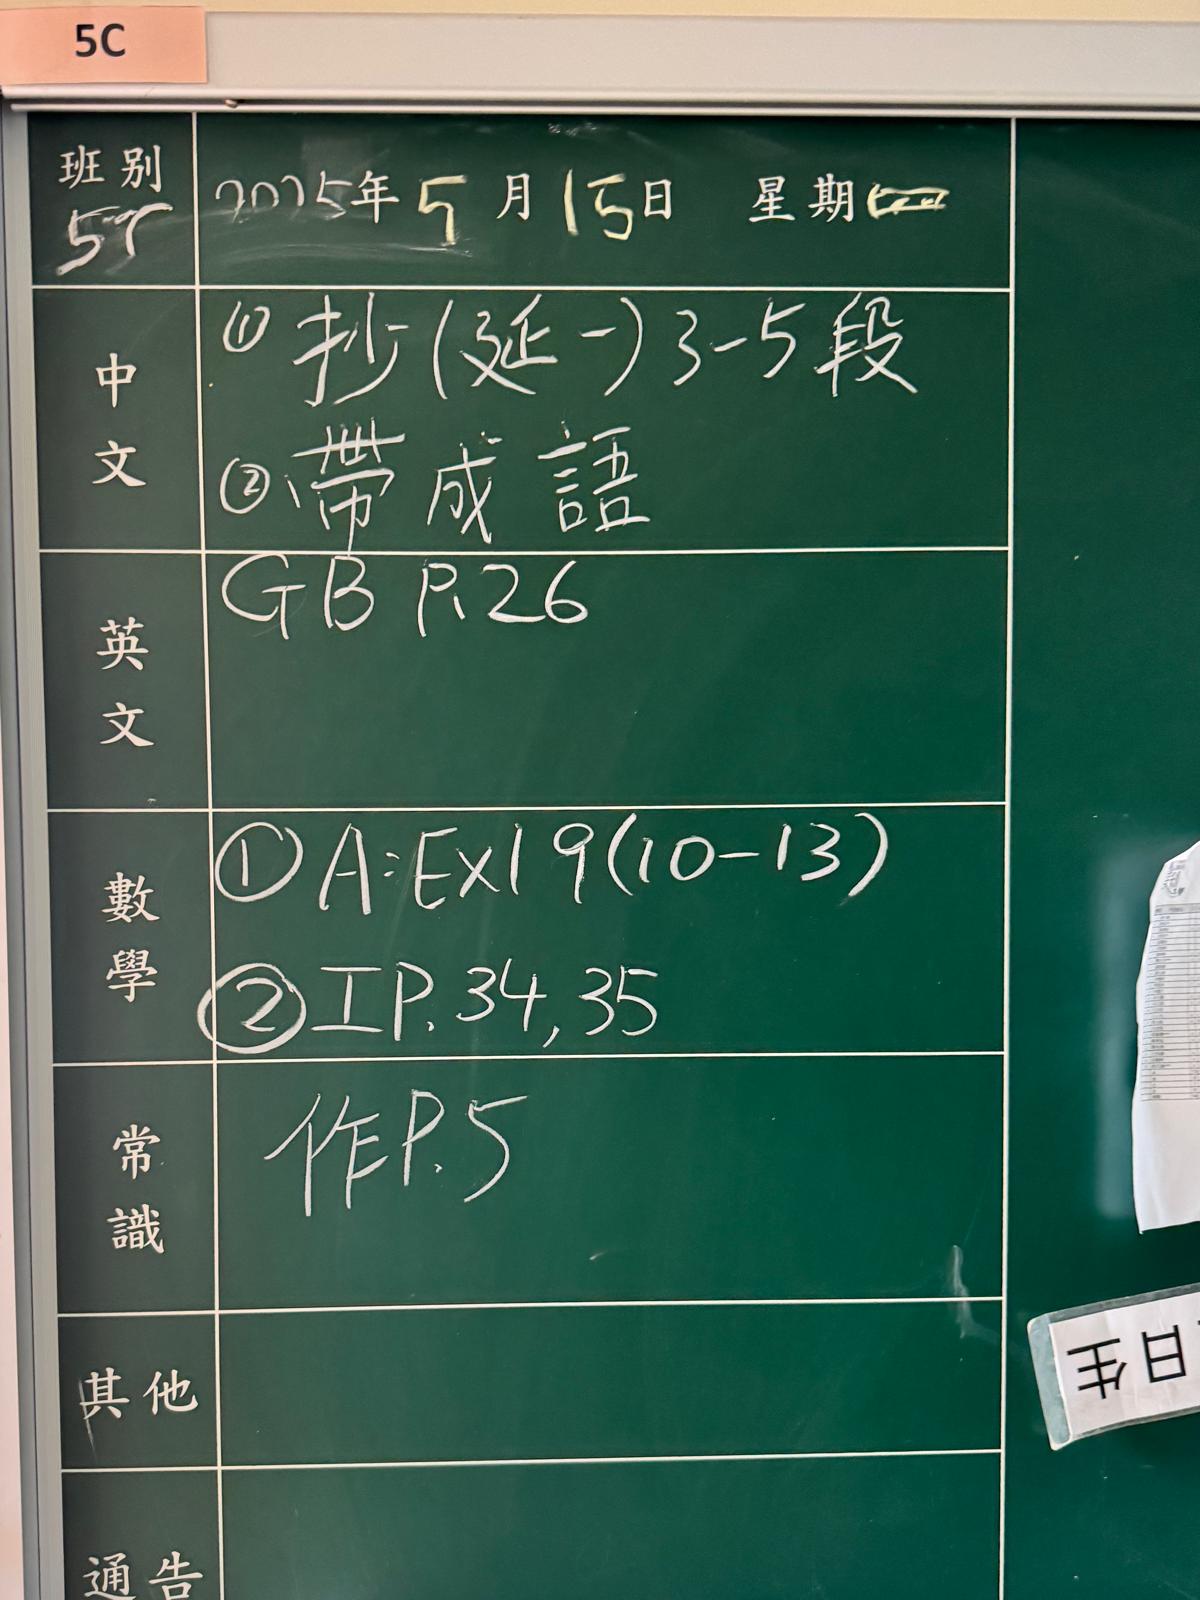 5C
班別
2025年5月15日 星期四
中文
① 抄(延一)3-5段
② 帶成語
英文
GB P.26
數學
① A:Ex19(10-13)
② IP.34,35
常識
作P.5
其他
通告
日生